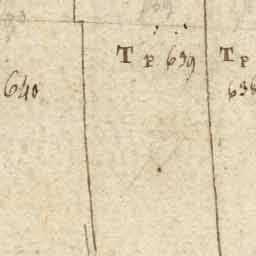 T p 639
T p
640
638